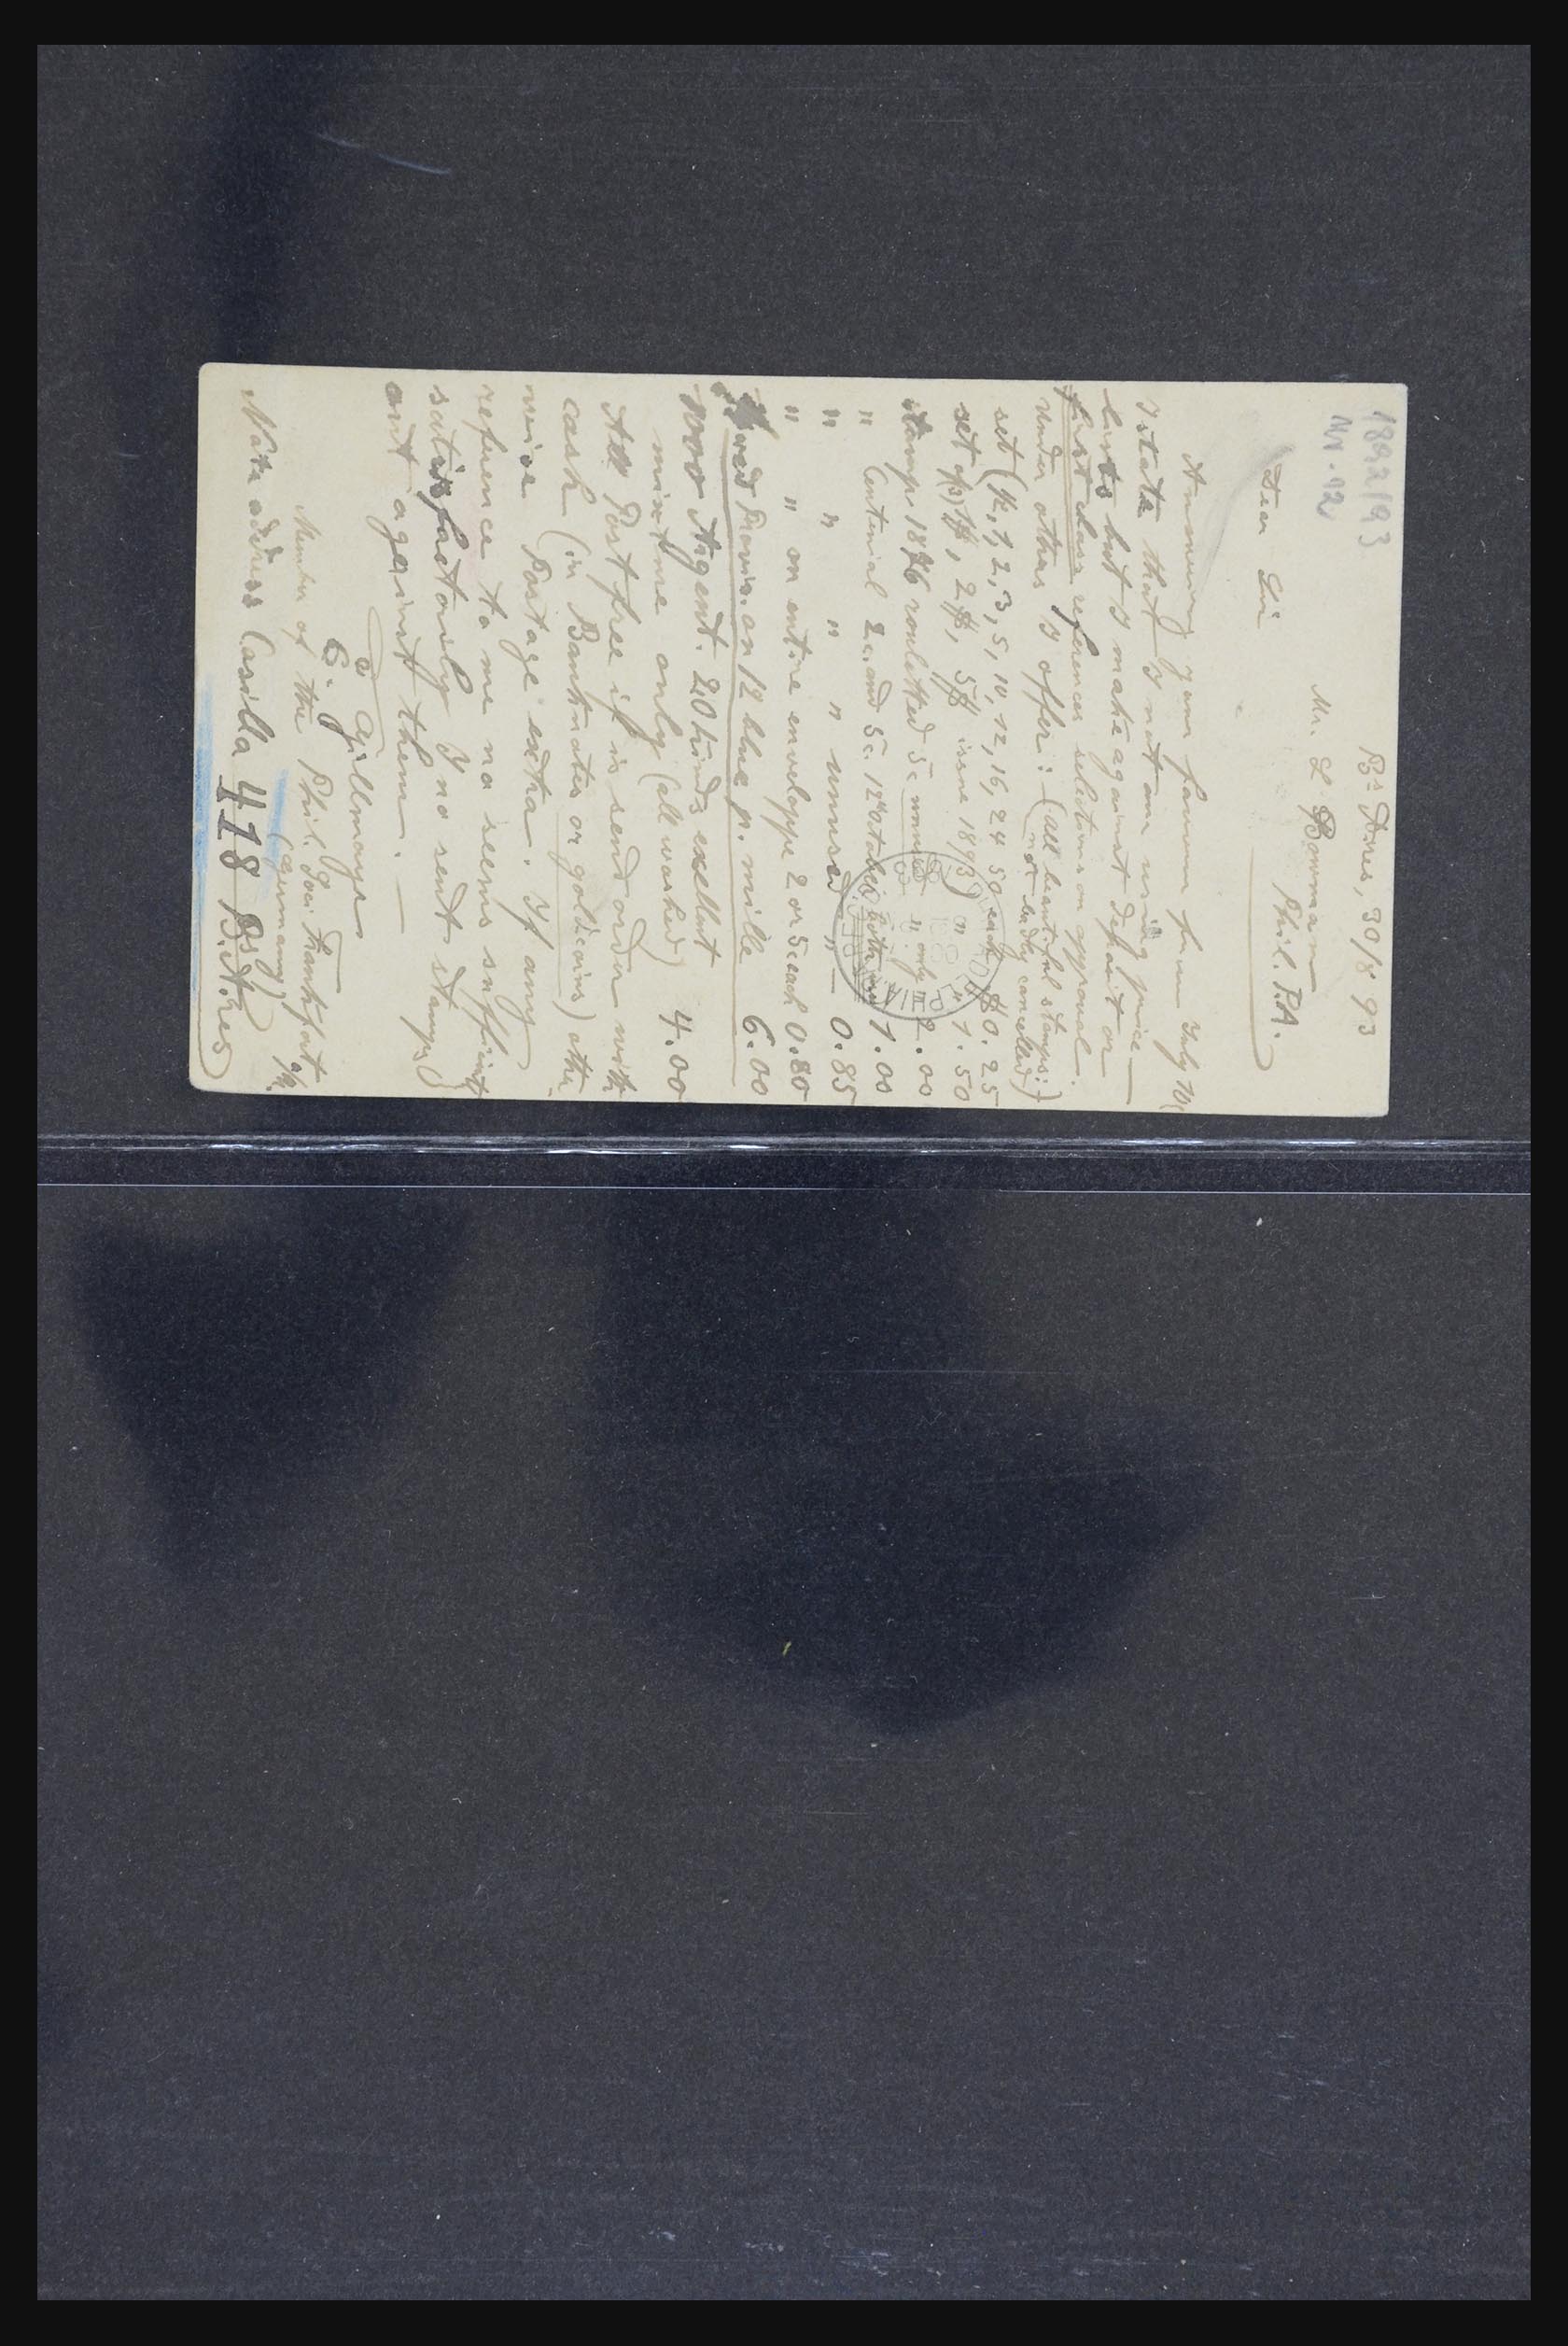 1892/93
Nr. 12
Bs Aires, 30/8 93
Mr. L Bowman
Phil. P.A.
Dear Sir
Answering your favour from July
I state that I not am using price
lists but I make against deposit or
first class references selections on approval.
Under others I offer: (all beautiful stamps:
not badly cancelled)
set (½, 1, 2, 3, 5, 10, 12, 16, 24 50 each $0.25
set of 1$, 2$, 5$ issue 1893) " " 1.50
stamp 1876 rouletted 5c unused " only 2.00
" Centenial 2c. and 5c. 12 October both 1.00
" " " " unused " — 0.85
" " on entire enveloppe 2 or 5c each 0.80
Provis. on 12 blue p. mille 6.00
1000 Argent. 20 kinds exellent
mixture only (all washed) 4.00
All Post free if is send order with
cash (in Banknotes or goldcoins) other
wise Postage extra. If any
reference to me no seems suffient
satisfactorily I no sent stamps
ont against them. —
C. Gillmayer
Member of the Phil. Frankfurt a/M.
(Germany)
Note adress Casilla 418 Bs Aires